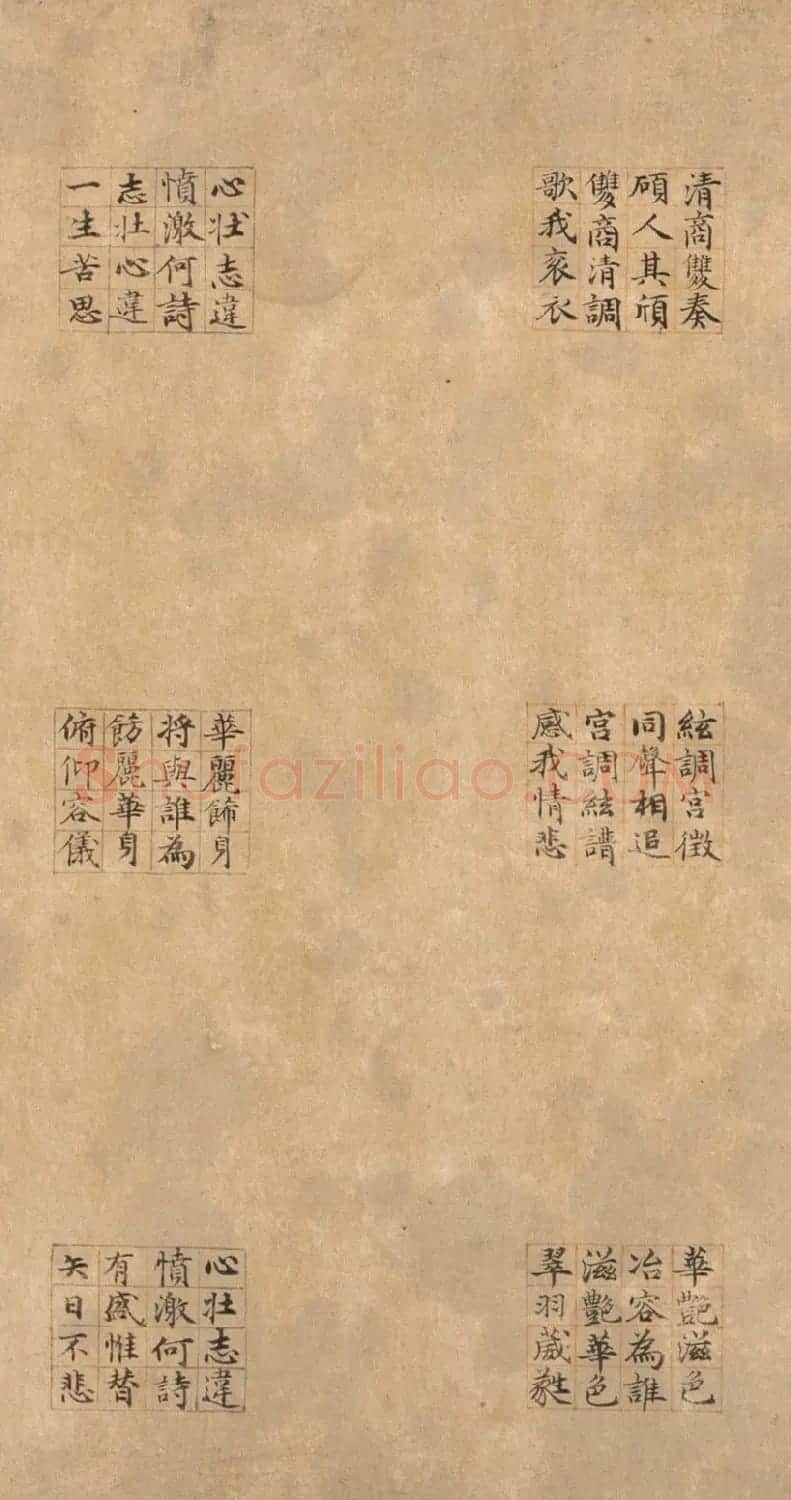 清商雙奏
碩人其頎
雙商清調
歌我袞衣
心壯志違
憤激何詩
志壯心違
一生苦思
絃調宮徵
同聲相追
宮調絃譜
感我情悲
華麗飾身
將與誰為
飾麗華身
俯仰容儀
華艷滋色
冶容為誰
滋艷華色
翠羽葳蕤
心壯志違
憤激何詩
有感惟替
矢日不悲
Shufaziliao.com